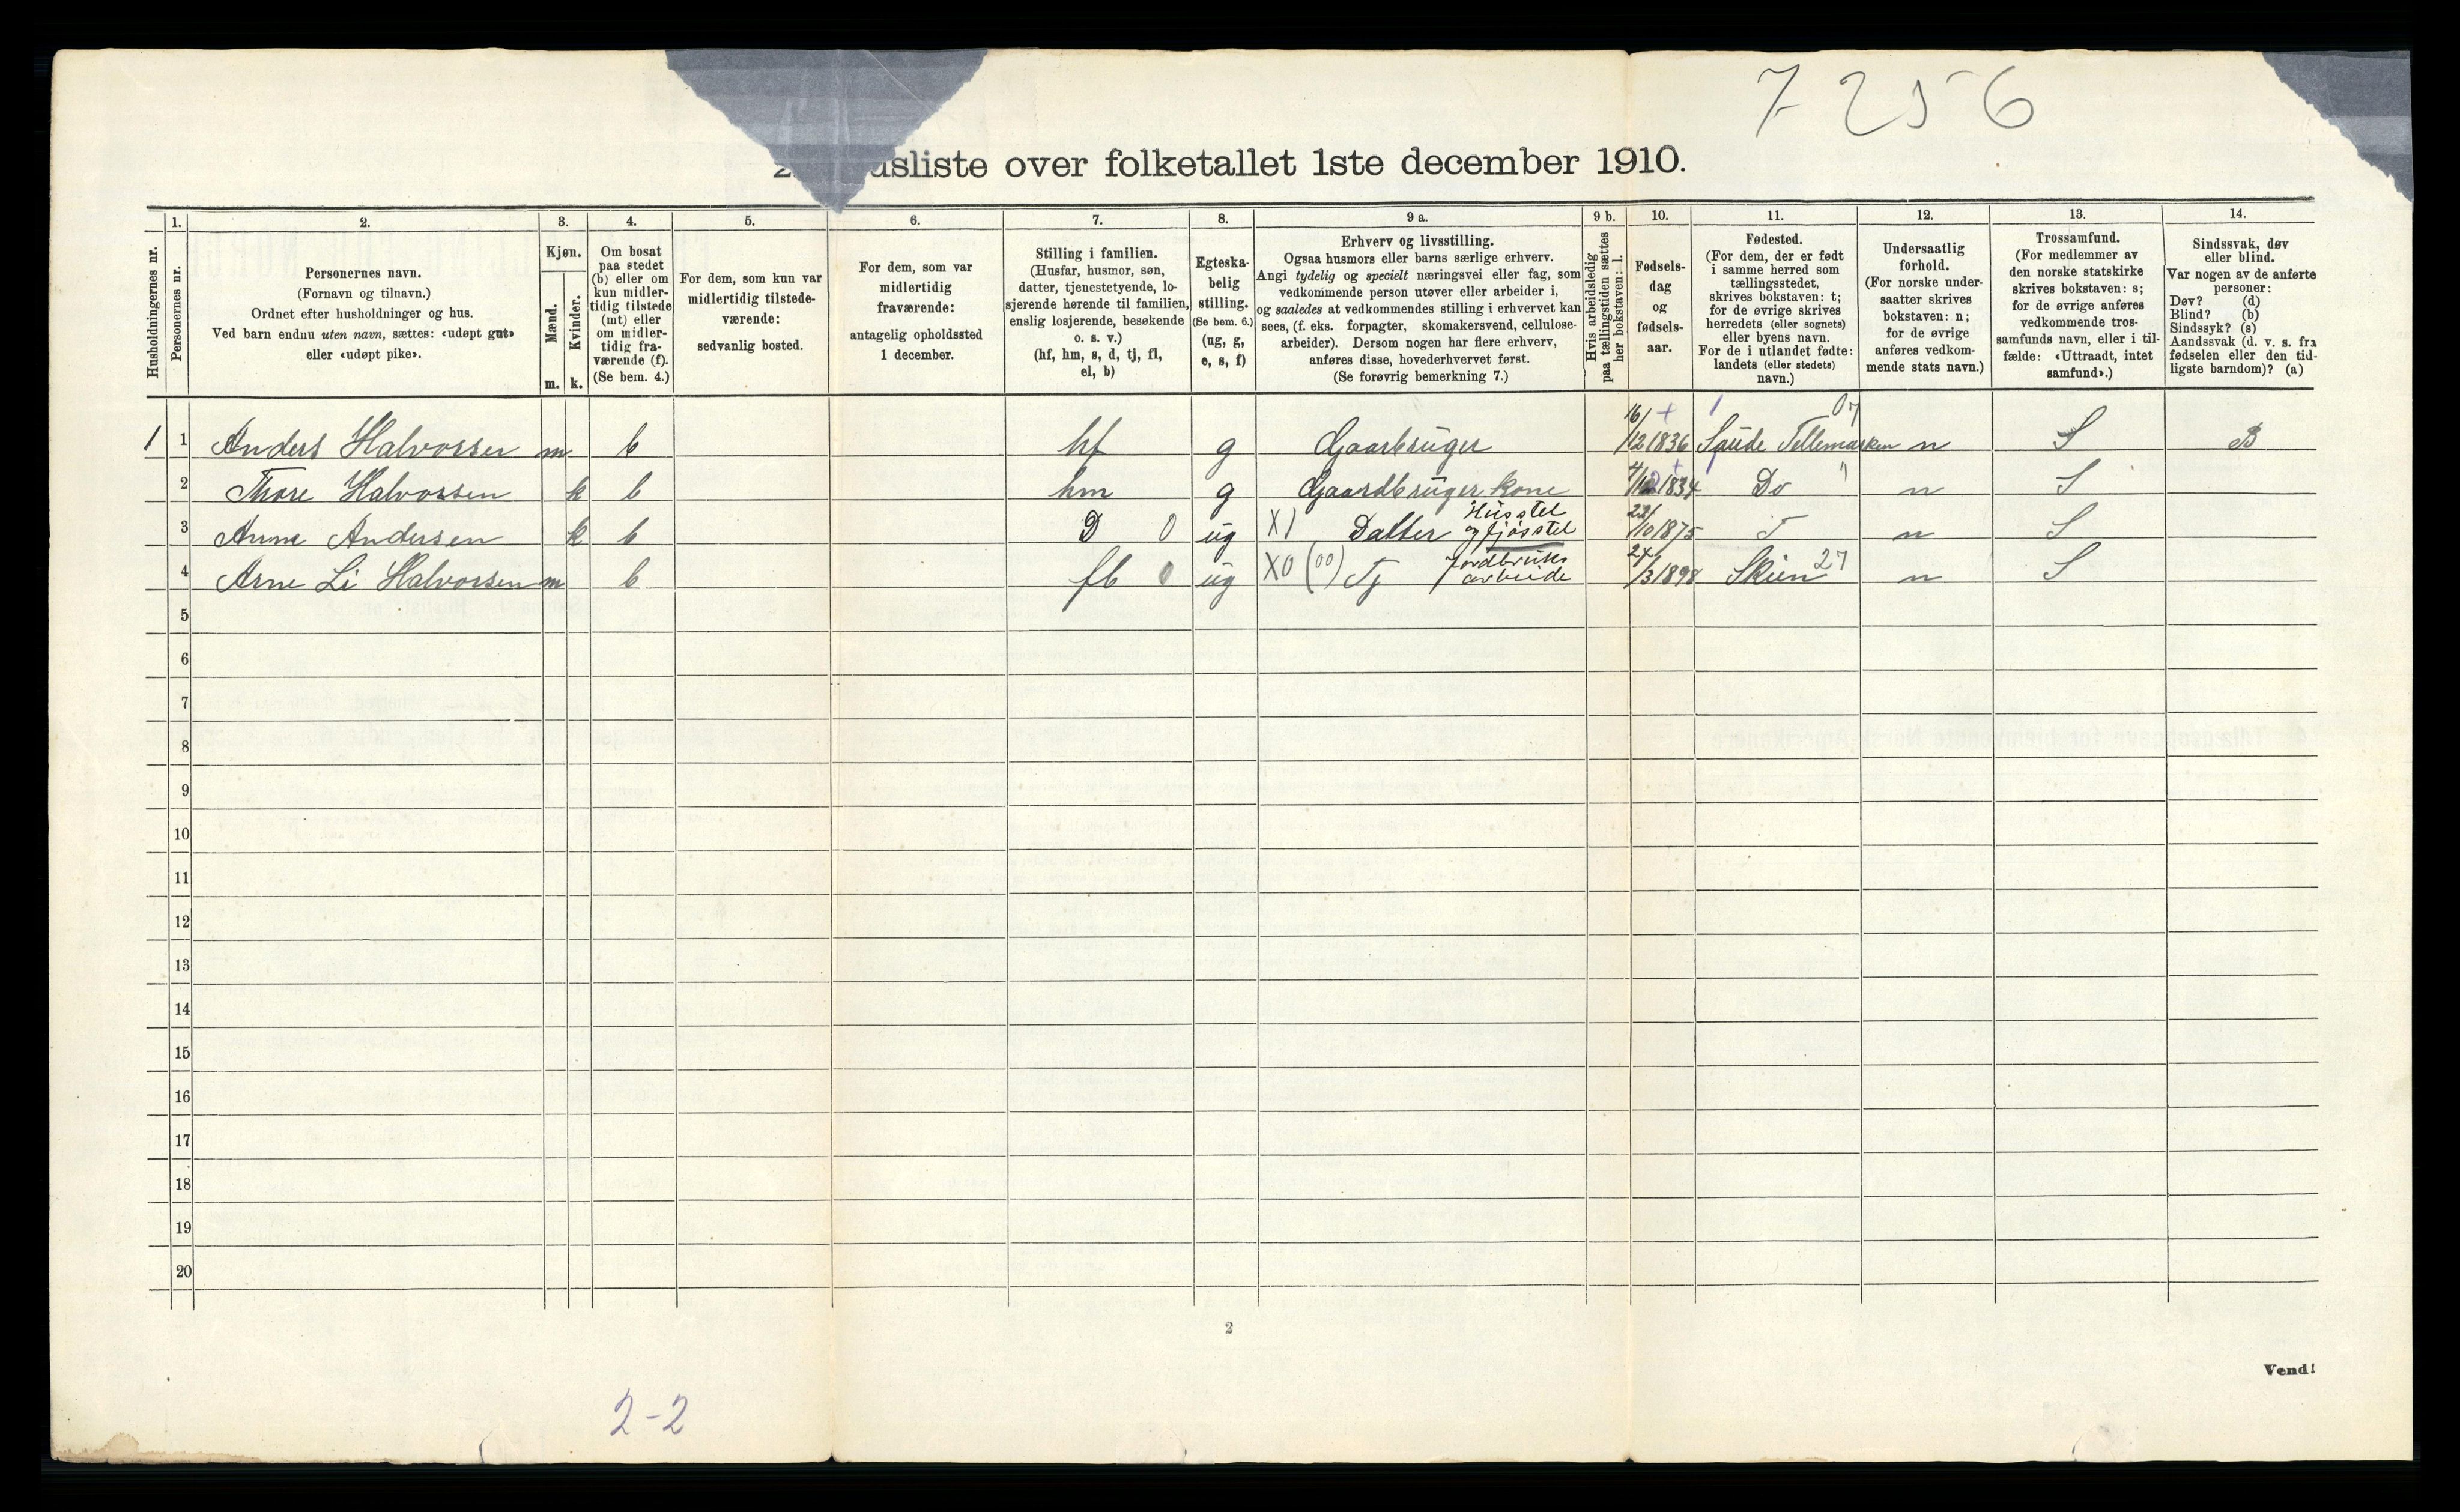 7256
usliste over folketallet 1ste december 1910.
Husholdningernes nr.
1.
Personernes nr.
2.
Personernes navn.
(Fornavn og tilnavn.)
Ordnet efter husholdninger og hus.
Ved barn endnu uten navn, sættes: «udøpt gut»
eller «udøpt pike».
3.
Kjøn.
Mænd.
m.
Kvinder.
k.
4.
Om bosat
paa stedet
(b) eller om
kun midler-
tidig tilstede
(mt) eller
om midler-
tidig fra-
værende (f).
(Se bem. 4.)
5.
For dem, som kun var
midlertidig tilstede-
værende:
sedvanlig bosted.
6.
For dem, som var
midlertidig
fraværende:
antagelig opholdssted
1 december.
7.
Stilling i familien.
(Husfar, husmor, søn,
datter, tjenestetyende, lo-
sjerende hørende til familien,
enslig losjerende, besøkende
o. s. v.)
(hf, hm, s, d, tj, fl,
el, b)
8.
Egteska-
belig
stilling.
(Se bem. 6.)
(ug, g,
e, s, f)
9 a.
Erhverv og livsstilling.
Ogsaa husmors eller barns særlige erhverv.
Angi tydelig og specielt næringsvei eller fag, som
vedkommende person utøver eller arbeider i,
og saaledes at vedkommendes stilling i erhvervet kan
sees, (f. eks. forpagter, skomakersvend, cellulose-
arbeider). Dersom nogen har flere erhverv,
anføres disse, hovederhvervet først.
(Se forøvrig bemerkning 7.)
9 b.
Hvis arbeidsledig
paa tællingstiden sættes
her bokstaven: l.
10.
Fødsels-
dag
og
fødsels-
aar.
11.
Fødested.
(For dem, der er født
i samme herred som
tællingsstedet,
skrives bokstaven: t;
for de øvrige skrives
herredets (eller sognets)
eller byens navn.
For de i utlandet fødte:
landets (eller stedets)
navn.)
12.
Undersaatlig
forhold.
(For norske under-
saatter skrives
bokstaven: n;
for de øvrige
anføres vedkom-
mende stats navn.)
13.
Trossamfund.
(For medlemmer av
den norske statskirke
skrives bokstaven: s;
for de øvrige anføres
vedkommende tros-
samfunds navn, eller i til-
fælde: «Uttraadt, intet
samfund».)
14.
Sindssvak, døv
eller blind.
Var nogen av de anførte
personer:
Døv? (d)
Blind? (b)
Sindssyk? (s)
Aandssvak (d. v. s. fra
fødselen eller den tid-
ligste barndom)? (a)
1 1 Anders Halvorsen m b hf g Gaarbruger 16/12 1836 Saude Tellemarken 07 n S B
2 Thore Halvorsen k b hm g Gaardbruger kone 4/12 1834 Do " n S
3 Anne Andersen k b D 0 ug X1 Datter Husstel og fjøsstel 23/10 1875 T n S
4 Arne Li Halvorsen m b fb 0 ug X0 (00) Tj Jordbruks arbeide 24/3 1898 Skien 27 n S
5
6
7
8
9
10
11
12
13
14
15
16
17
18
19
20
2
Vend!
2-2